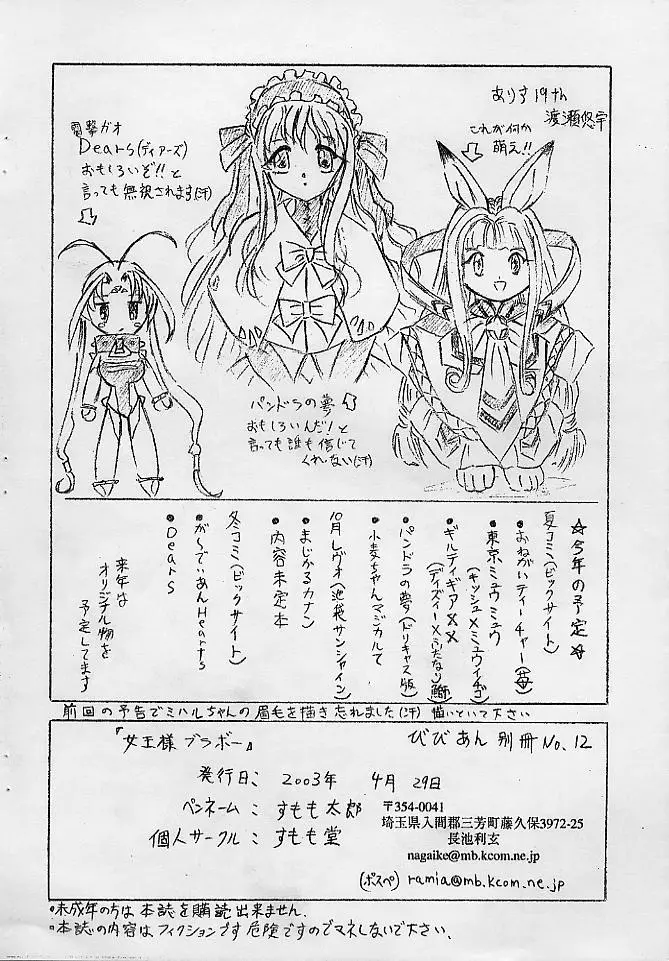 ありす19th
渡瀬悠宇
これが何か
萌え!!
電撃ガオ
Dears(ディアーズ)
おもしろいぞ!!と
言っても無視されます(汗)
パンドラの夢
おもしろいんだ!と
言っても誰も信じて
くれない(汗)
☆今年の予定☆
夏コミ(ビックサイト)
・おねがいティーチャー(苺)
・東京ミュウミュウ
(キッシュ×ミュウイチゴ)
・ギルティギア××
(ディズィー×ふたなり鰤)
・パンドラの夢(ドリキャス版)
・小麦ちゃんマジカルて
10月レヴォ(池袋サンシャイン)
・まじかるカナン
・内容未定本
冬コミ(ビックサイト)
・がーでぃあんHearts
・Dears
来年は
オリジナル物を
予定してます
前回の予告でミハルちゃんの眉毛を描き忘れました(汗) 描いといて下さい
『女王様ブラボー』
びびあん 別冊 No.12
発行日: 2003年 4月 29日
ペンネーム: すもも太郎
個人サークル: すもも堂
〒354-0041
埼玉県入間郡三芳町藤久保3972-25
長池利玄
nagaike@mb.kcom.ne.jp
(ポスペ) ramia@mb.kcom.ne.jp
・未成年の方は本誌を購読出来ません.
・本誌の内容はフィクションです危険ですのでマネしないで下さい.